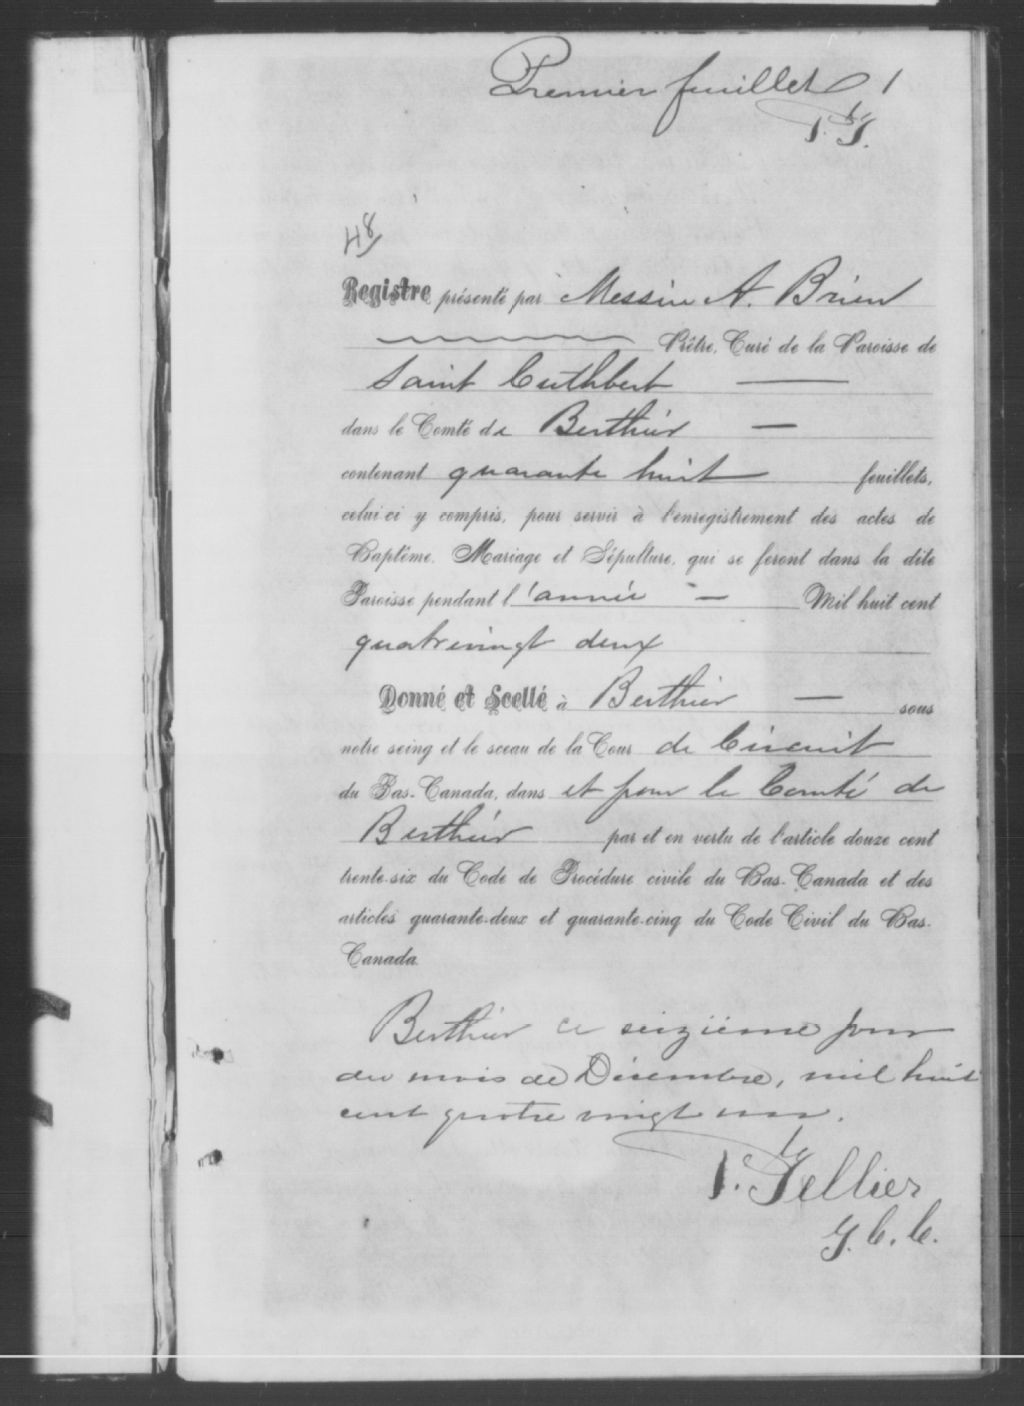 Premier feuillet 1
P. T.
48
Registre présenté par Messire A. Brien
Prêtre, Curé de la Paroisse de
Saint Cuthbert
dans le Comté de Berthier
contenant quarante huit feuillets,
celui-ci y compris, pour servir à l'enregistrement des actes de
Baptême, Mariage et Sépulture, qui se feront dans la dite
Paroisse pendant l'année Mil huit cent
quatrevingt deux
Donné et Scellé à Berthier sous
notre seing et le sceau de la Cour de Circuit
du Bas-Canada, dans et pour le Comté de
Berthier par et en vertu de l'article douze cent
trente-six du Code de Procédure civile du Bas-Canada et des
articles quarante-deux et quarante-cinq du Code Civil du Bas-
Canada.
Berthier ce seizième jour
du mois de Décembre, mil huit
cent quatre vingt un.
P. Tellier
G. C. C.